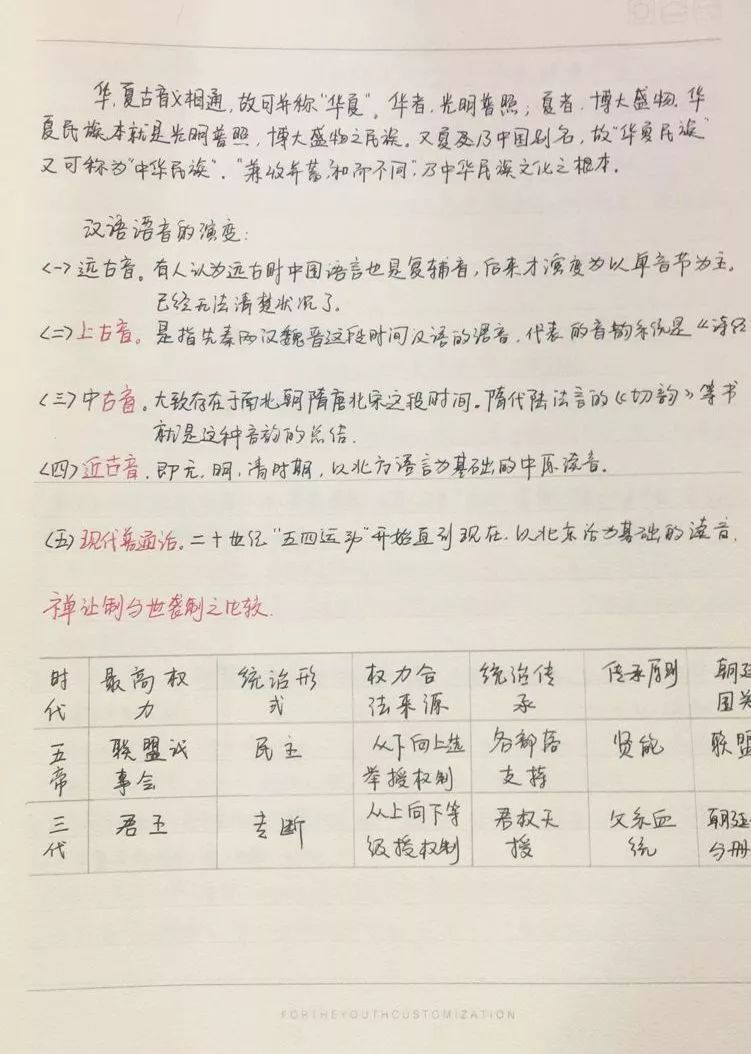 华,夏古音义相通,故可并称“华夏”。华者,光明普照;夏者,博大盛物.华
夏民族本就是光明普照,博大盛物之民族。又夏乃中国别名,故“华夏民族”
又可称为“中华民族”.“兼收并蓄,和而不同”,乃中华民族文化之根本.
汉语语音的演变:
<一>远古音。有人认为远古时中国语言也是复辅音,后来才演变为以单音节为主.
已经无法清楚状况了。
<二>上古音。是指先秦两汉魏晋这段时间汉语的语音.代表的音韵系统是《诗经
<三>中古音.大致存在于南北朝隋唐北宋这段时间.隋代陆法言的《切韵》等书
就是这种音韵的总结.
<四>近古音.即元,明,清时期,以北方语言为基础的中原读音。
<五>现代普通话.二十世纪“五四运动”开始直到现在.以北京话为基础的读音.
禅让制与世袭制之比较.
时代 最高权力 统治形式 权力合法来源 统治传承 传承原则 朝廷国关
五帝 联盟议事会 民主 从下向上选举授权制 各部落支持 贤能 联盟
三代 君王 专断 从上向下等级授权制 君权天授 父系血统 朝廷与册
FORTHEYOUTHCUSTOMIZATION